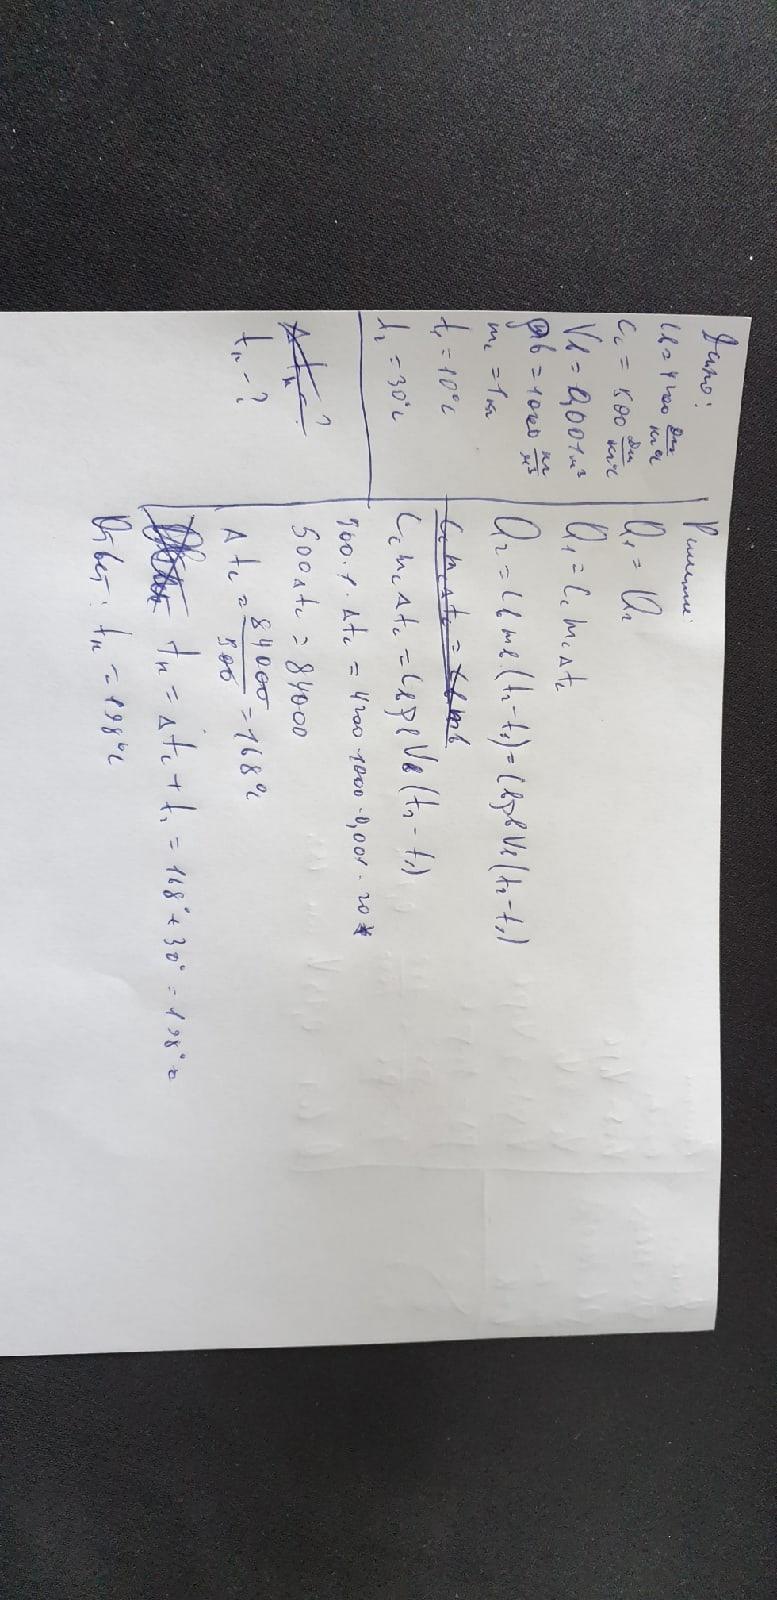 Дано:
cв = 4200 Дж/кг°С
cс = 500 Дж/кг°С
Vв = 0,001 м³
ρв = 1000 кг/м³
mс = 1 кг
t₁ = 10°С
t₂ = 30°С
Δtн = ?
tн - ?
Решение:
Q₁ = Q₂
Q₁ = CсmсΔtс
Q₂ = Cвmв·(t₂-t₁) = CвρвVв(t₂-t₁)
CсmсΔtс = Cвmв
CсmсΔtс = CвρвVв(t₂-t₁)
500·1·Δtс = 4200·1000·0,001·20
500Δtс = 84000
Δtс = 84000/500 = 168°С
tн = Δtс + t₁ = 168° + 30° = 198°С
Ответ: tн = 198°С